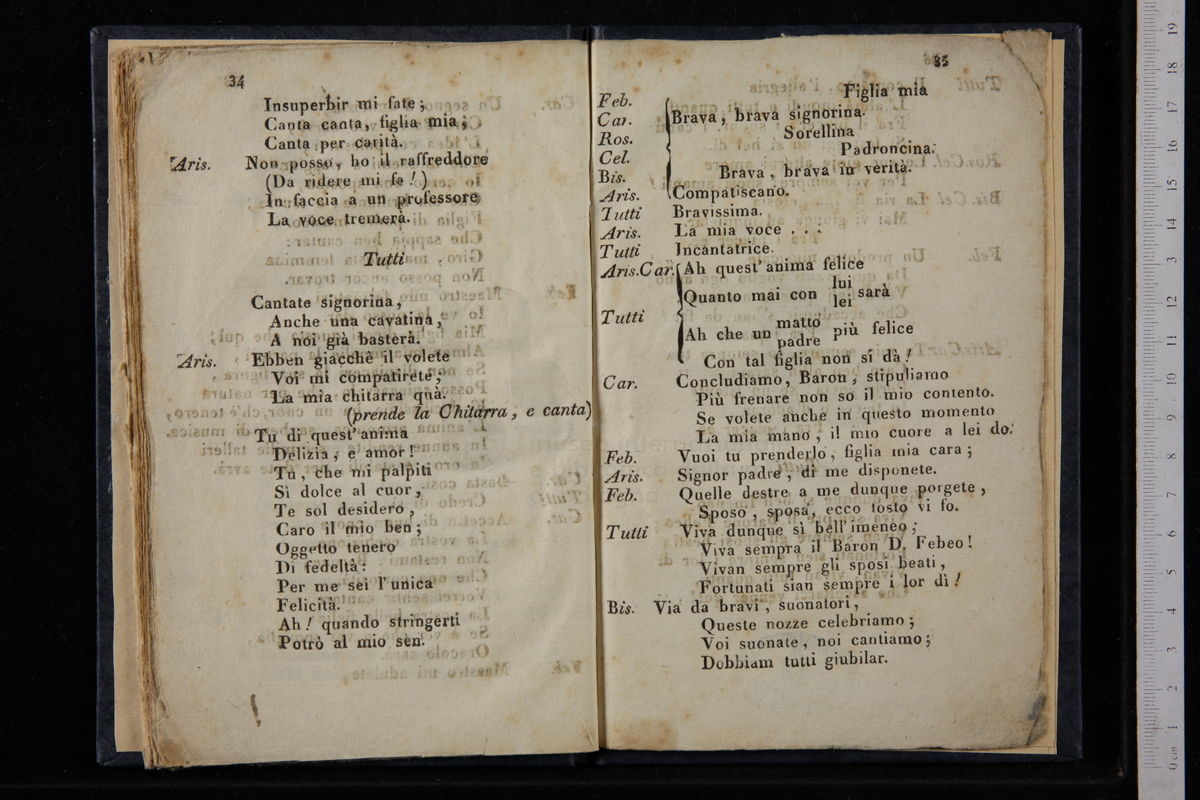 34
Insuperbir mi fate;
Canta canta, figlia mia;
Canta per carità.
Aris. Non posso, ho il raffreddore
(Da ridere mi fa!)
In faccia a un professore
La voce tremerà.
Tutti
Cantate signorina,
Anche una cavatina,
A noi già basterà.
Aris. Ebben giacchè il volete
Voi mi compatirete;
La mia chitarra quà.
(prende la Chitarra, e canta)
Tu di quest' anima
Delizia, e amor!
Tu, che mi palpiti
Sì dolce al cuor,
Te sol desidero,
Caro il mio ben;
Oggetto tenero
Di fedeltà:
Per me sei l'unica
Felicità.
Ah! quando stringerti
Potrò al mio sen.
35
Feb. Figlia mia
Car. Brava, brava signorina.
Ros. Sorellina
Cel. Padroncina.
Bis. Brava, brava in verità.
Aris. Compatiscano.
Tutti Bravissima.
Aris. La mia voce . . .
Tutti Incantatrice.
Aris.Car. Ah quest' anima felice
Quanto mai con lui lei sarà
Tutti Ah che un matto padre più felice
Con tal figlia non si dà!
Car. Concludiamo, Baron, stipuliamo
Più frenare non so il mio contento.
Se volete anche in questo momento
La mia mano, il mio cuore a lei do.
Feb. Vuoi tu prenderlo, figlia mia cara;
Aris. Signor padre, di me disponete.
Feb. Quelle destre a me dunque porgete,
Sposo, sposa, ecco tosto vi fo.
Tutti Viva dunque sì bell' imeneo;
Viva sempra il Baron D. Febeo!
Vivan sempre gli sposi beati,
Fortunati sian sempre i lor dì!
Bis. Via da bravi, suonatori,
Queste nozze celebriamo;
Voi suonate, noi cantiamo;
Dobbiam tutti giubilar.